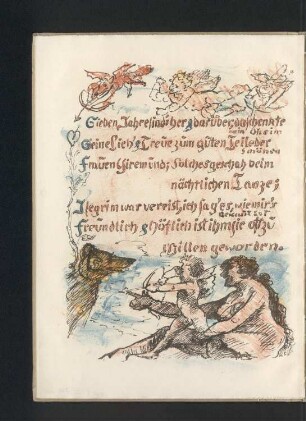 Sieben Jahre sind's her & darüber, da schenkte
mein Oheim
Seine Lieb' & Treue zum guten Teil der
schönen
Frauen Giremund; Solches geschah beim
nächtlichen Tanze;
Isegrim war verreist, ich sag' es, wie mir's
bekannt ist
Freundlich & höflich ist ihm sie oft zu
Willen geworden.